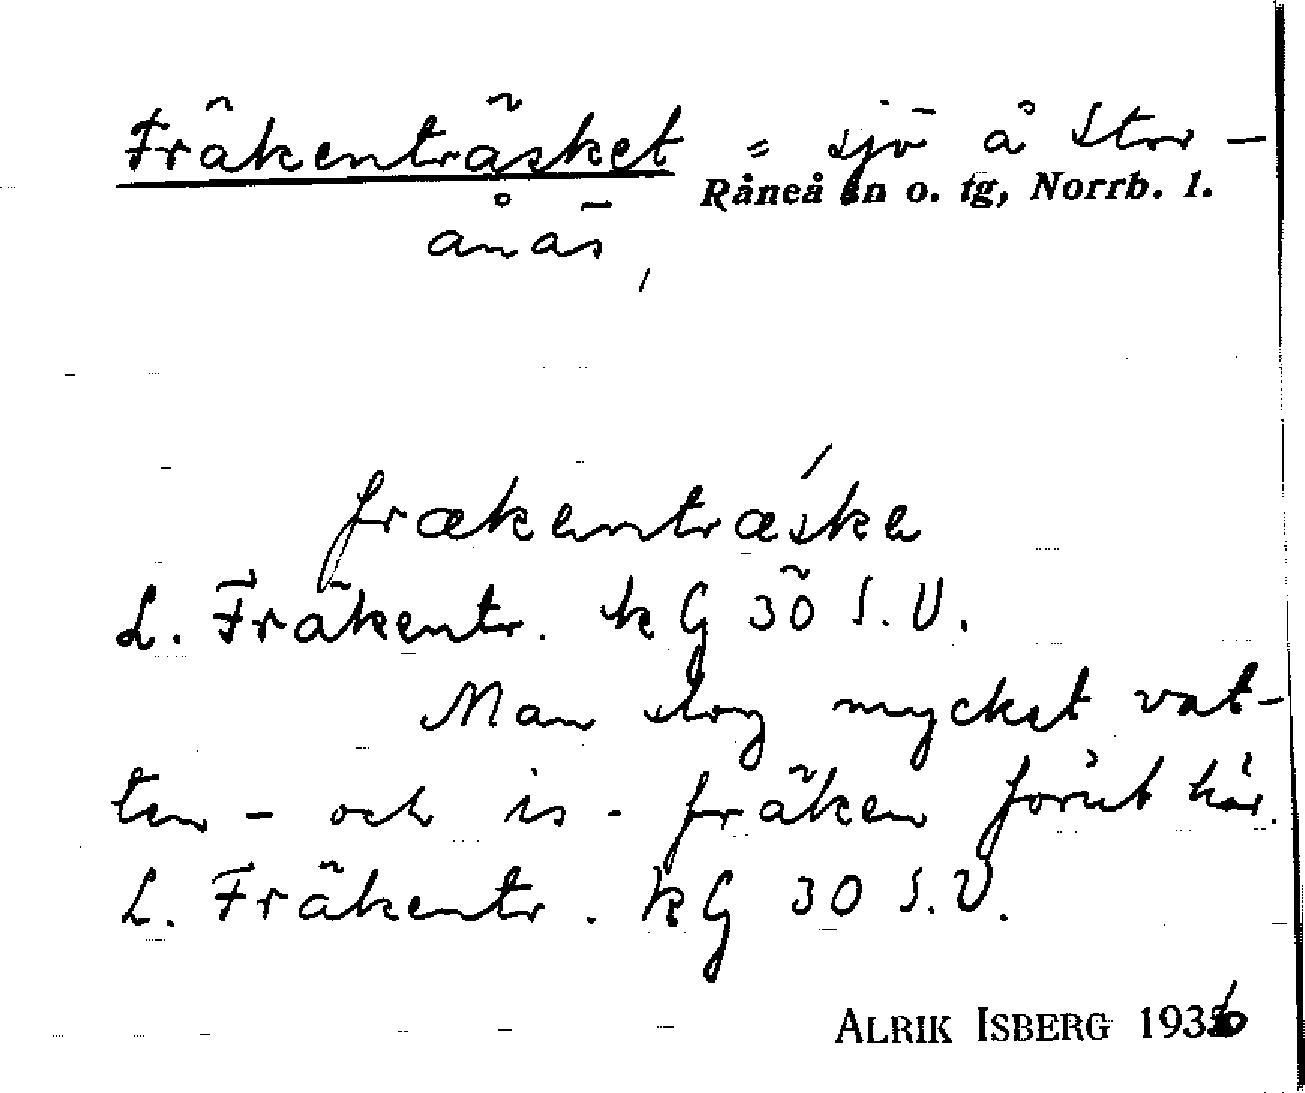 Fräkenträsket = sjö å Stor-
Råneå sn o. tg, Norrb. l.
ånäs,
frækentræ´ske
L. Fräkentr. kG 30 S.V.
Man slog mycket vat-
ten- och is-fräken förut här.
L. Fräkentr. kG 30 S.V.
ALRIK ISBERG 1936